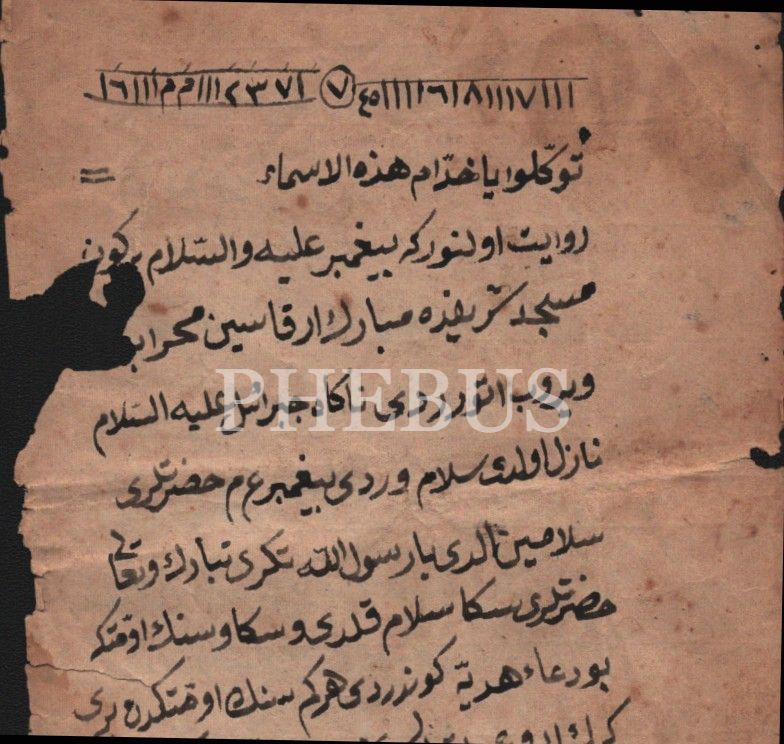 ١٦١١١م م١١١٢٣٧١ ٧ ٤٥١١١١١٦١٨١١١١٧١١١
توكّلوا يا خدّام هذه الاسماء
روايت اولنور كه بيغمبر عليه والسّلام بركون
مسجد شريفده مبارك ارقاسين محرابه
ويروب اتورردى ناكاه جبرائيل عليه السّلام
PHEBUS
نازل اولدى سلام وردى بيغمبر ع م حضرتلرى
سلامين الدى يا رسول الله تكرى تبارك وتعالى
حضرتلرى سكا سلام قلدى وسكا وسنك اومّتكه
بو دعاء هديّه كوندردى هر كم سنك اومّتكدن